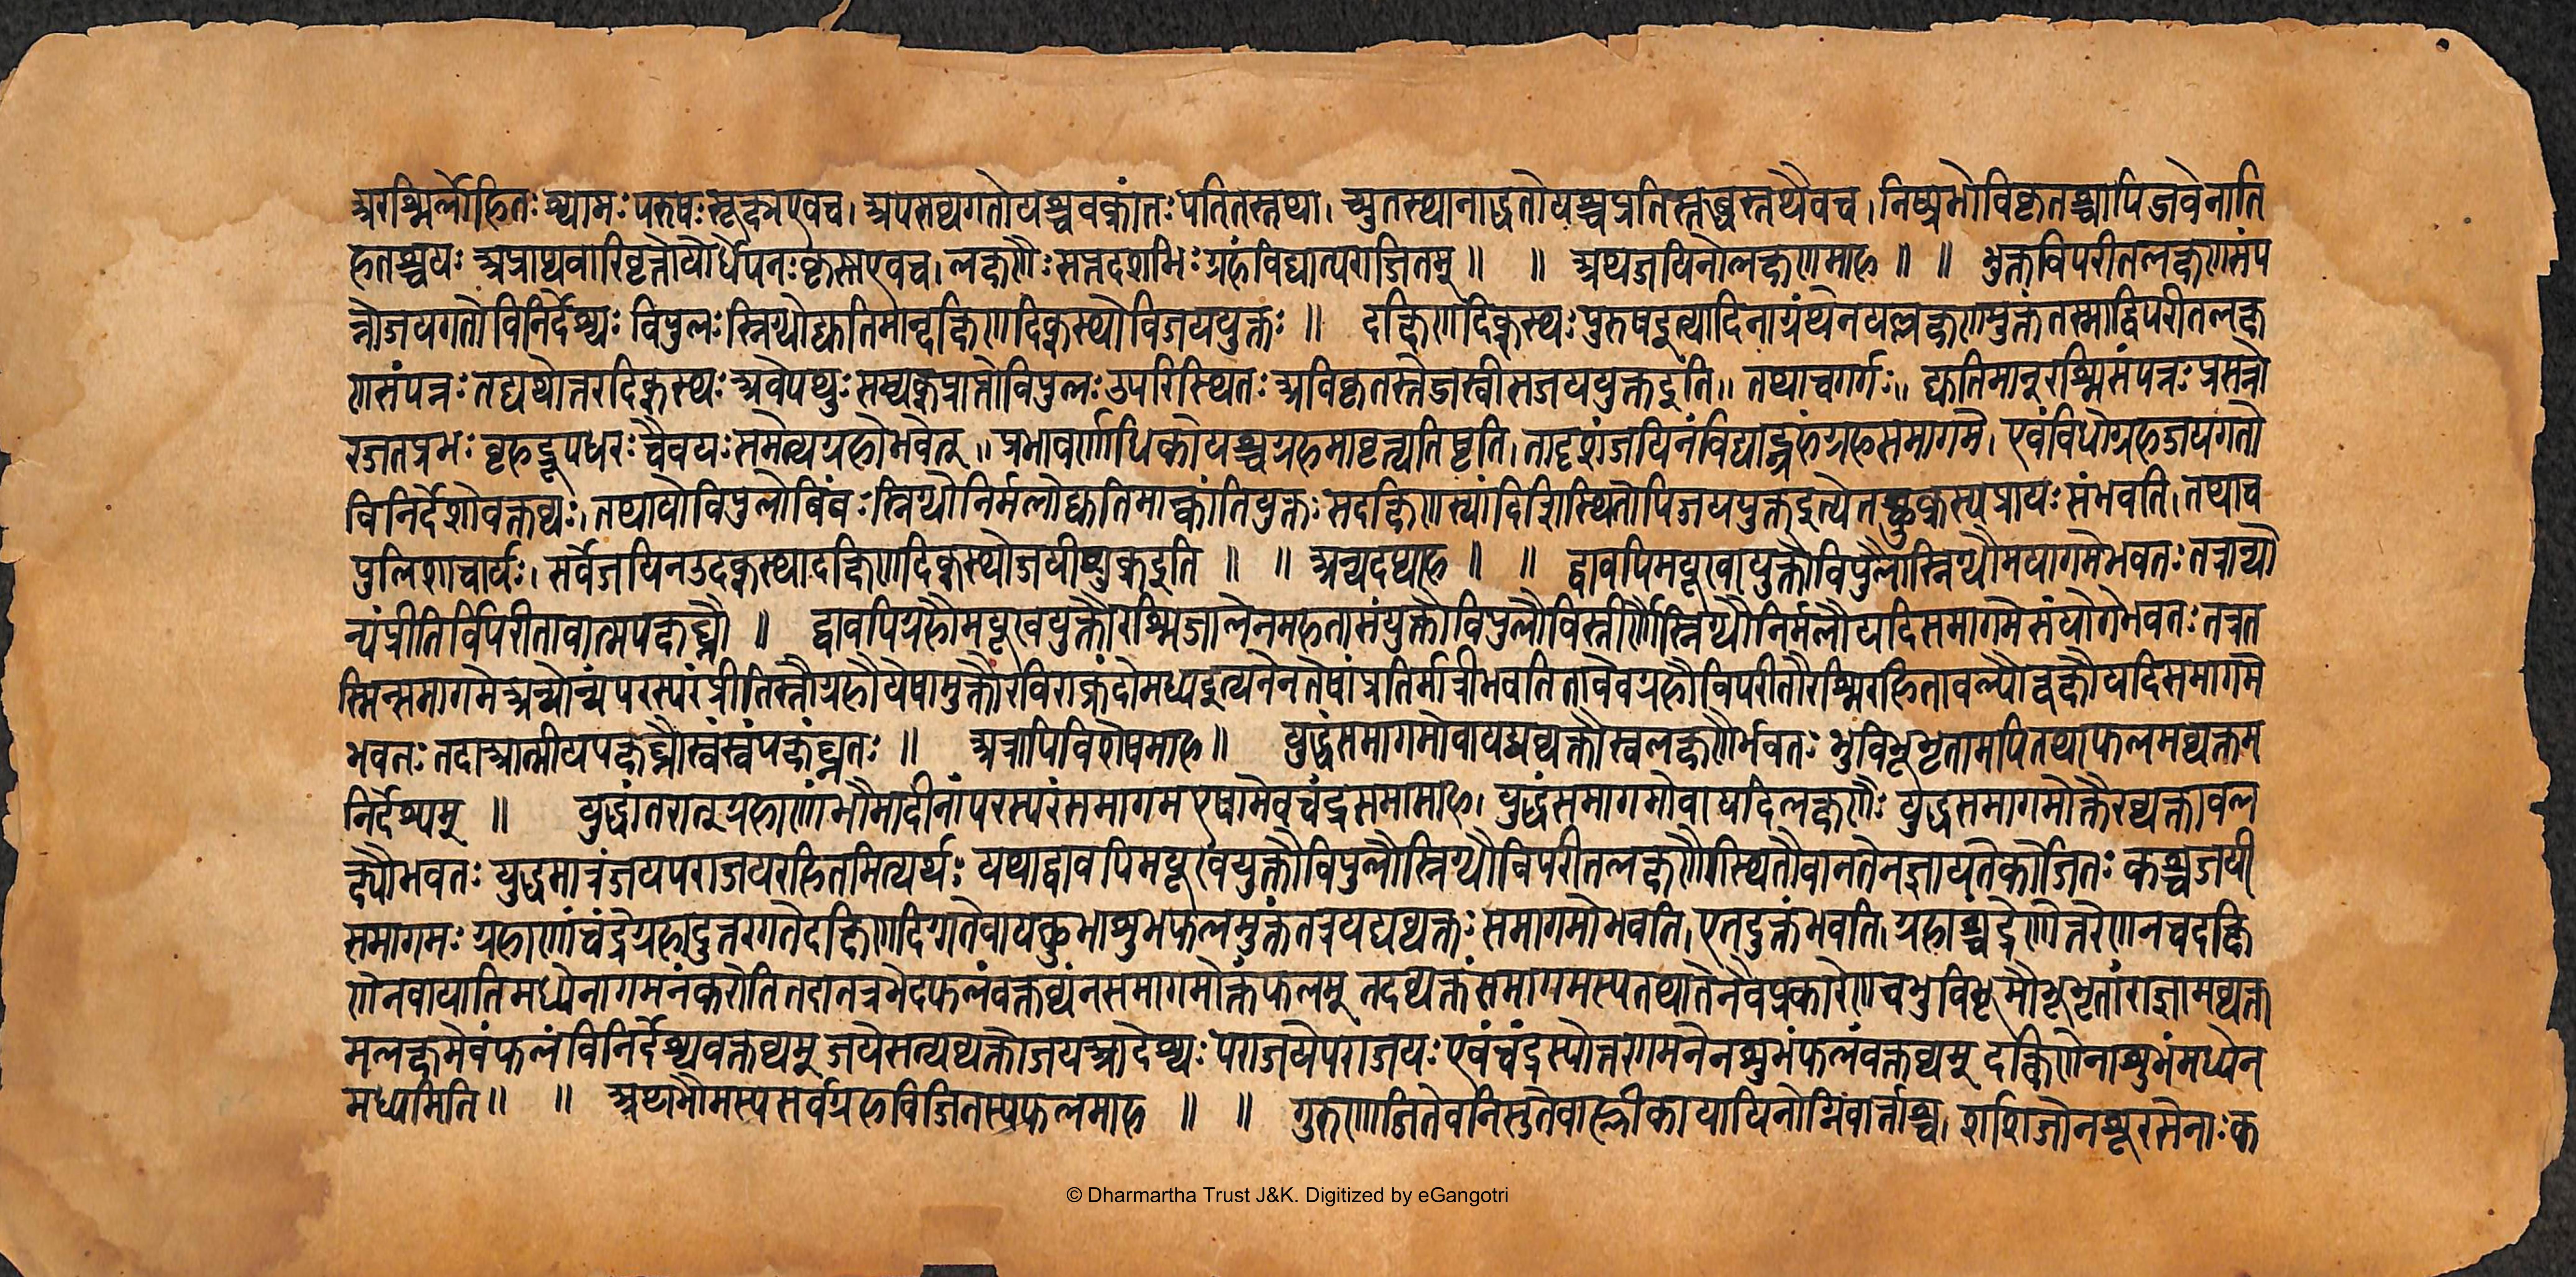 अरश्मिर्लोहितः श्यामः परुषः सूक्ष्म एव च। अपसव्यगतो यश्च वक्रांतः पतितस्तथा। च्युतस्थानाद्धतो यश्च प्रतिस्तब्धस्तथैव च। निष्प्रभो विकृतश्चापि जवेनाति
हतश्च यः अप्राप्य वा विवृत्तो यो वेपनः कृत्स्न एव च। लक्षणैः सप्तदशभिः ग्रहं विद्यात्पराजितम् ॥ ॥ अथ जयिनो लक्षणमाह ॥ ॥ भुक्तविपरीतलक्षणसंप
न्नो जयगतो विनिर्देश्यः विपुलः स्निग्धो द्युतिमान्दक्षिणदिक्स्थो विजययुक्तः ॥ दक्षिणदिक्स्थः पुरुष इत्यादिना ग्रंथेन यल्लक्षणमुक्तं तस्माद्विपरीतलक्ष
णसंपन्नः तद्यथोत्तरदिक्स्थः अवेपथुः सम्यक्प्राप्तो विपुलः उपरिस्थितः अविकृतस्तेजस्वी स जययुक्त इति॥ तथा च गर्गः॥ द्युतिमान् रश्मिसंपन्नः प्रसन्नो
रजतप्रभः बृहद्रूपधरः चैव यः समेत्य ग्रहो भवेत् ॥ प्रभावर्णाधिको यश्च ग्रहमावृत्य तिष्टति। तादृशं जयिनं विद्याद्ग्रहं ग्रहसमागमे। एवंविधो ग्रह जयगतो
विनिर्देशो वक्तव्यः। तथा यो विपुलो बिंबः स्निग्धो निर्मलो द्युतिमान्कांतियुक्तः स दक्षिणस्यां दिशि स्थितोपि जययुक्त इत्येतच्छुक्रस्य प्रायः संभवति। तथा च
पुलिशाचार्यः। सर्वे जयिन उदक्स्था दक्षिणदिक्स्थो जयी शुक्र इति ॥ ॥ अन्यदप्याह ॥ ॥ द्वावपि मयूखयुक्तौ विपुलौ स्निग्धौ समागमे भवतः तत्रान्यो
न्यं प्रीतिर्विपरीतावात्मपक्षघ्नौ ॥ द्वावपि ग्रहौ मयूखयुक्तौ रश्मिजालेन महता संयुक्तौ विपुलौ विस्तीर्णौ स्निग्धौ निर्मलौ यदि समागमे संयोगे भवतः तत्र त
स्मिन्समागमे अन्योन्यं परस्परं प्रीतिस्तौ ग्रहौ येषामुक्तौ रविराक्रंदो मध्य इत्यनेन तेषां प्रतिर्मात्री भवति तावेव ग्रहौ विपरीतौ रश्मिरहितावल्पौ रूक्षौ यदि समागमे
भवतः तदा आत्मीयपक्षघ्नौ स्वं स्वं पक्षं घ्नतः ॥ अत्रापि विशेषमाह॥ युद्धं समागमो वा यद्यव्यक्तौ स्वलक्षणैर्भवतः भुवि भूभृतामपि तथा फलमव्यक्तम
निर्देश्यम् ॥ युद्धांतरात् ग्रहाणां भौमादीनां परस्परं समागम एषामेव चंद्रसमामाह। युद्धं समागमो वा यदि लक्षणैः युद्धसमागमोक्तैरव्यक्तावल
क्ष्यौ भवतः युद्धमात्रं जयपराजयरहितमित्यर्थः यथा द्वावपि मयूखयुक्तौ विपुलौ स्निग्धौ विपरीतलक्षणौ स्थितौ वा न तेन ज्ञायते को जितः कश्च जयी
समागमः ग्रहाणां चंद्रे ग्रहादुत्तरगते दक्षिणदिग्गते वा यच्छुभाशुभफलमुक्तं तत्र यद्यव्यक्तः समागमो भवति। एतदुक्तं भवति। ग्रहाश्चंद्रेणोत्तरेण न च दक्षि
णेन वा याति मध्येनागमनं करोति तदा तत्र भेदफलं वक्तव्यं न समागमोक्तं फलम् तदव्यक्तं समागमस्य तथा तेनैव प्रकारेण च भुवि भूमौ भूभृतां राज्ञामव्यक्त
मलक्षमेवं फलं विनिर्देश्य वक्तव्यम् जये सत्यव्यक्तो जय आदेश्यः पराजये पराजयः एवं चंद्रस्योत्तरगमनेन शुभं फलं वक्तव्यम् दक्षिणेनाशुभं मध्येन
मध्यमिति॥ ॥ अथ भौमस्य सर्वग्रहविजितस्य फलमाह ॥ ॥ गुरुणा जितेवनिसुते बाह्लीका यायिनोग्निवार्त्ताश्च। शशिजेन शूरसेनाः क
© Dharmartha Trust J&K. Digitized by eGangotri